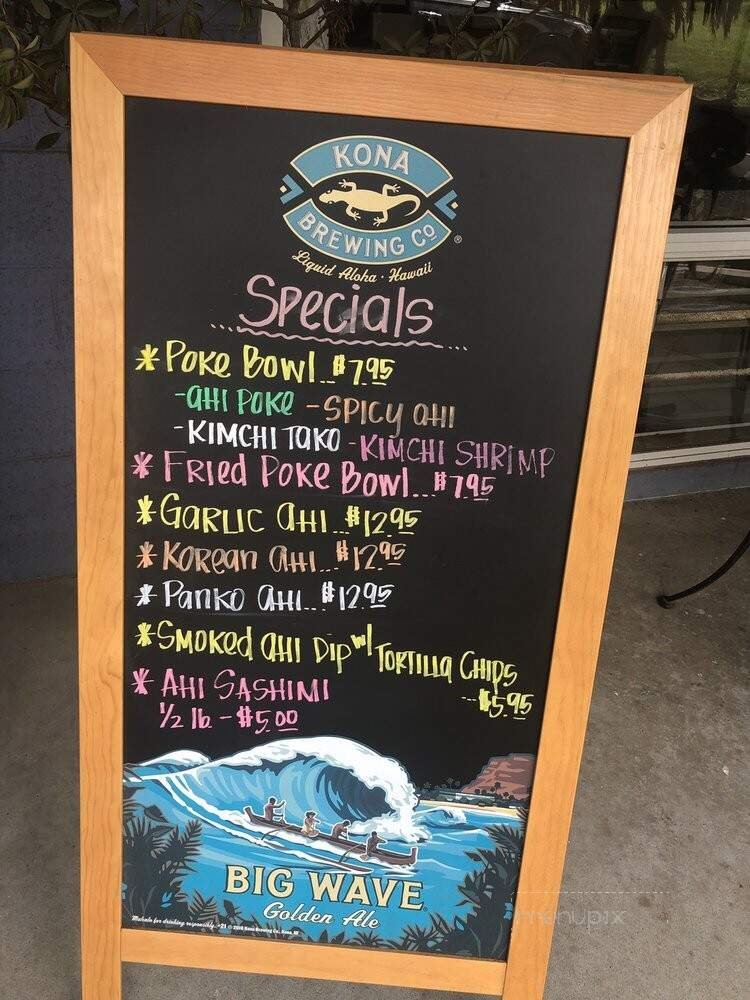 KONA
BREWING CO ®
Liquid Aloha · Hawaii
Specials
* Poke Bowl...$7.95
- AHI POKE - SPICY AHI
- KIMCHI TAKO - KIMCHI SHRIMP
* FRIED POKE BOWL...$7.95
* GARLIC AHI...$12.95
* KOREAN AHI...$12.95
* PANKO AHI...$12.95
* SMOKED AHI DIP w/ TORTILLA CHIPS
---$5.95
* AHI SASHIMI
1/2 lb - $5.00
BIG WAVE
Golden Ale
Mahalo for drinking responsibly.
menupix